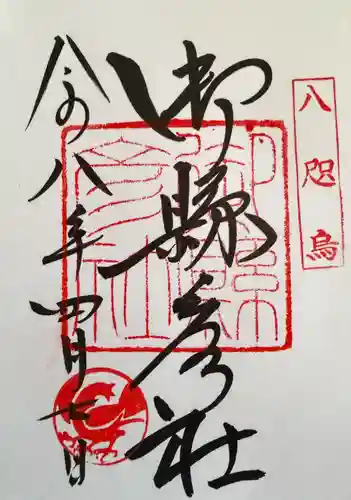 八咫烏
御縣彦社
令和八年四月七日